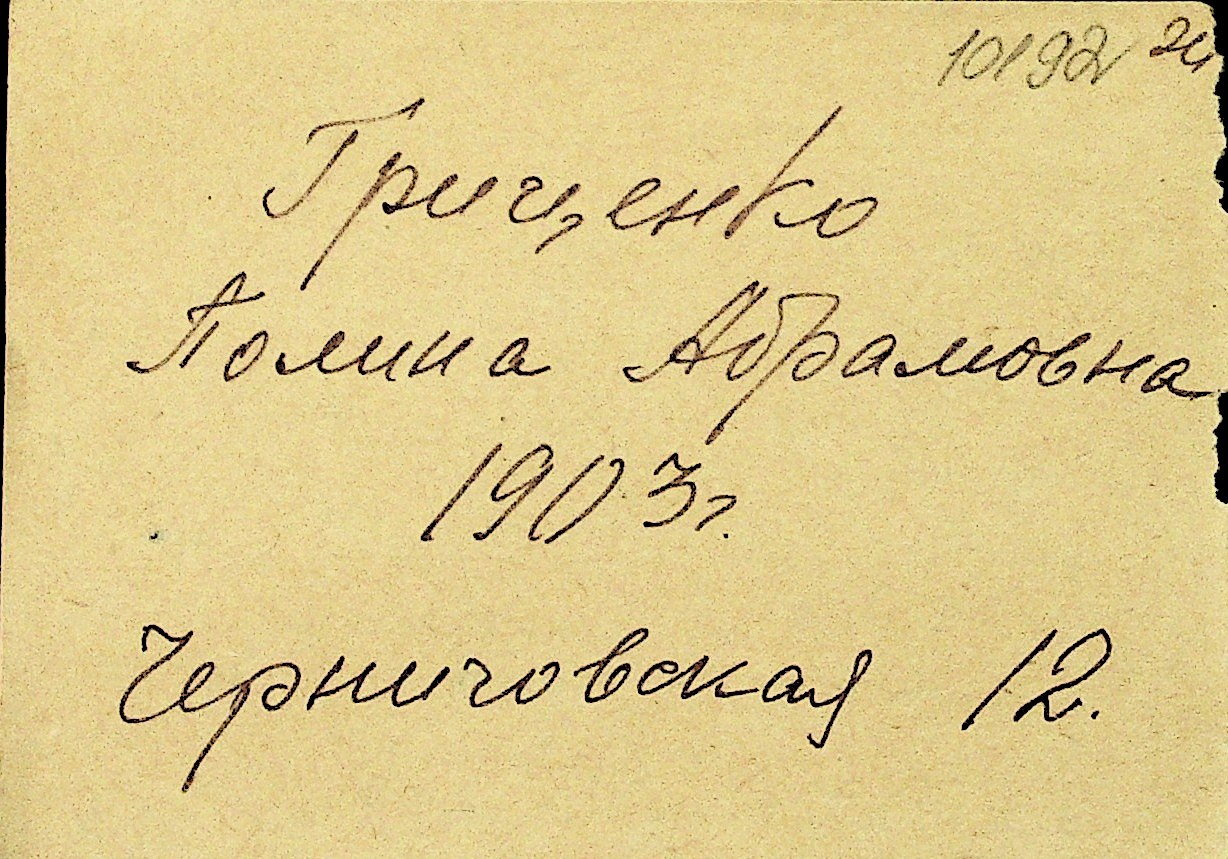 10192
Грищенко
Полина Абрамовна
1903г.
Черниговская 12.